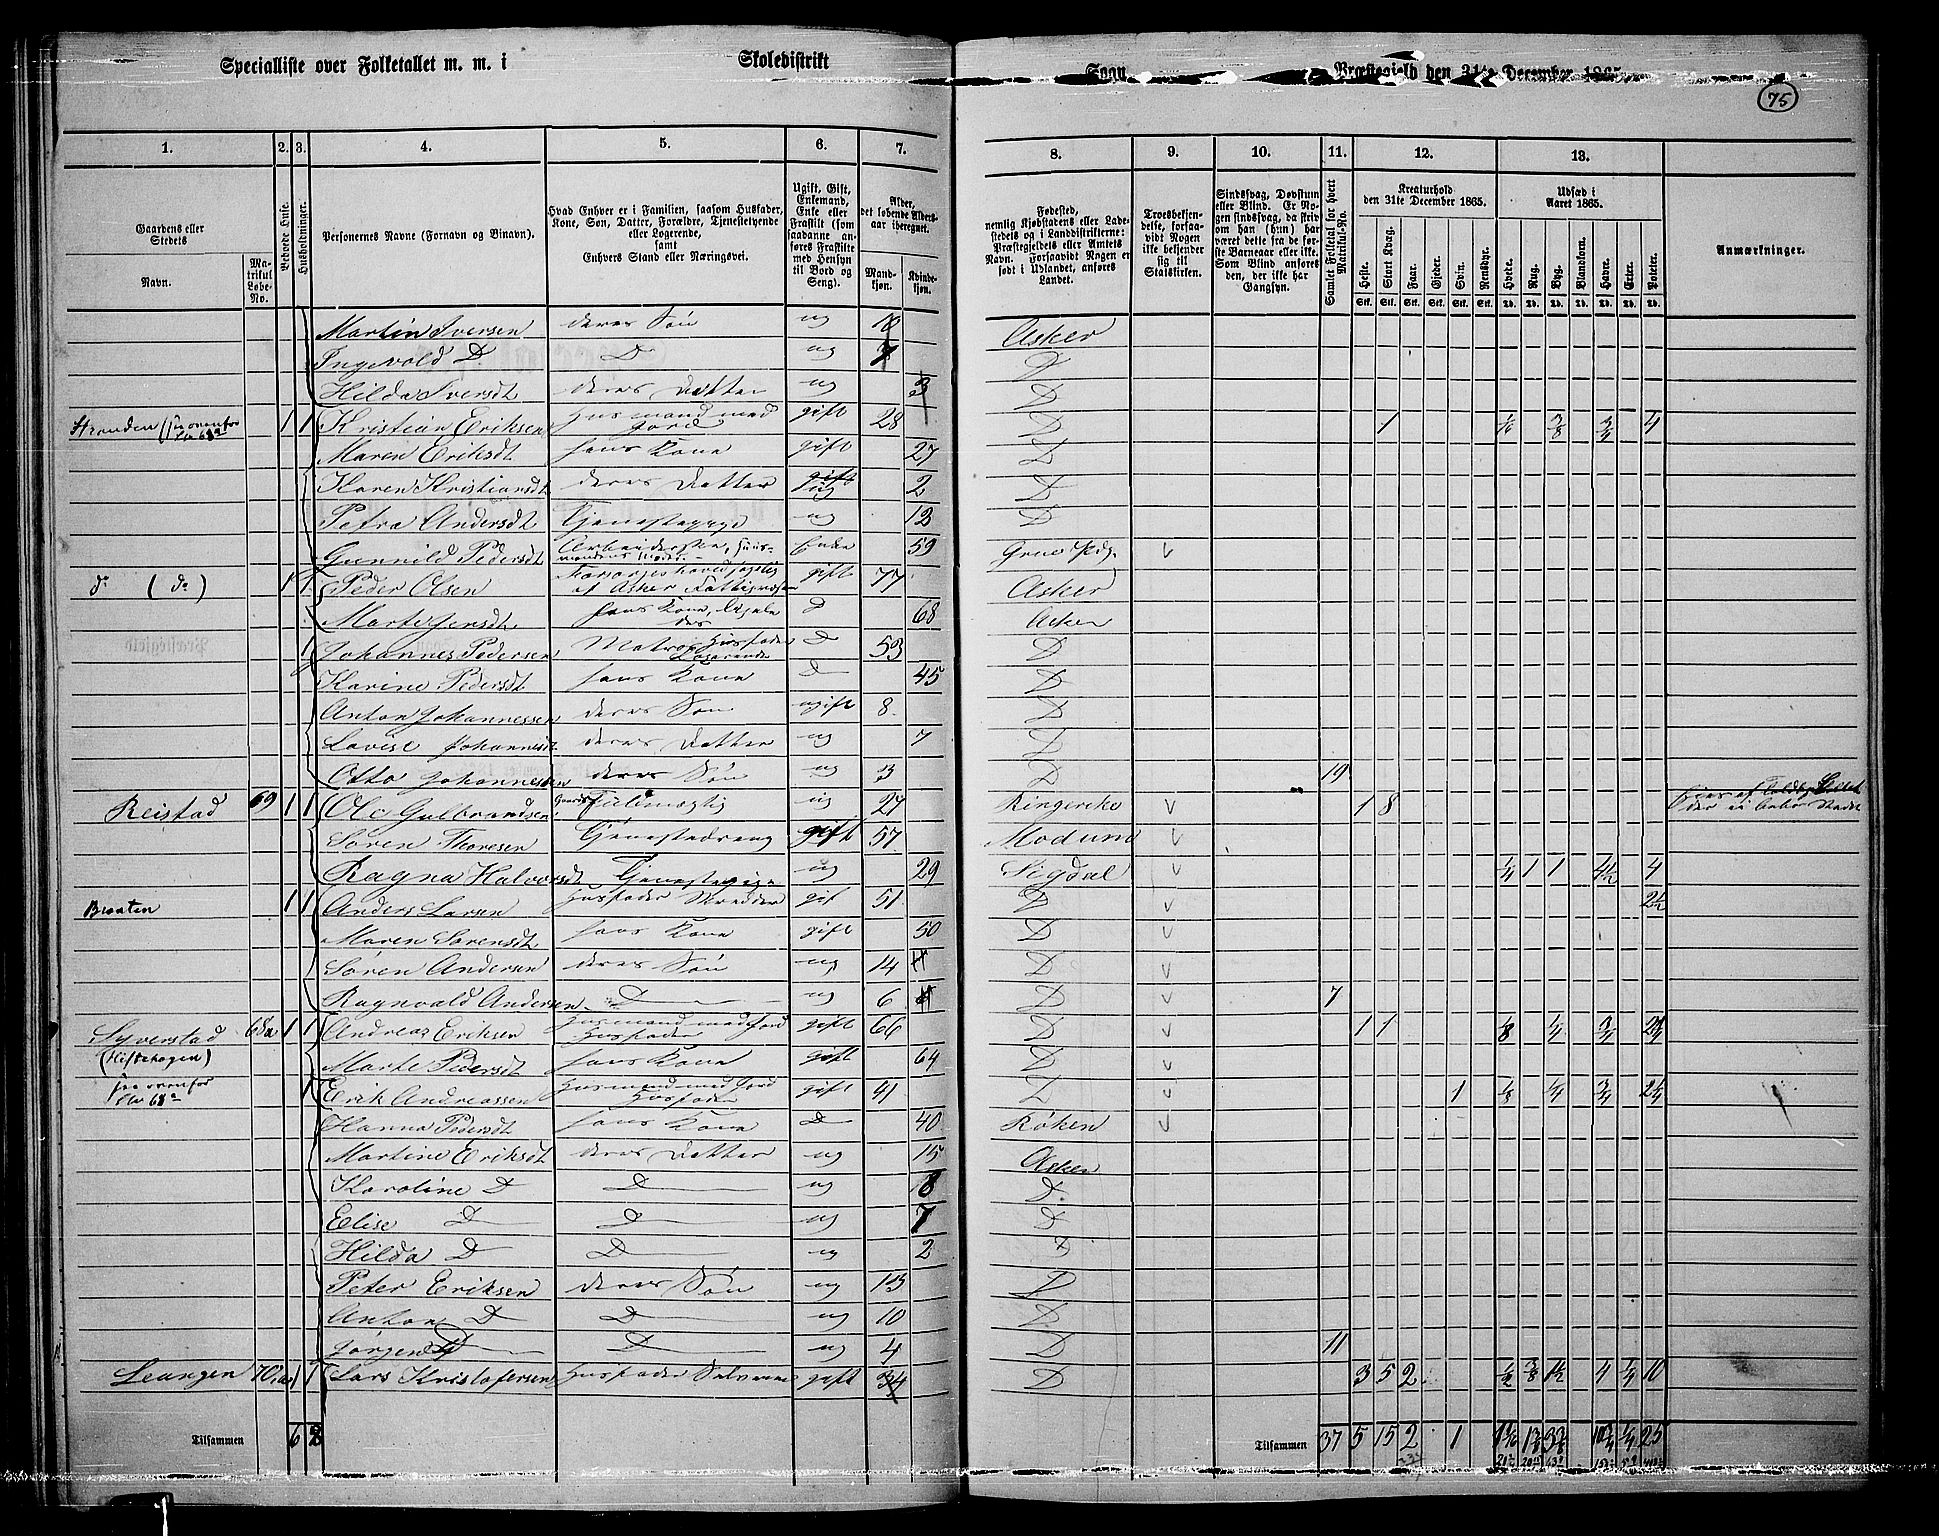 Specialliste over Folketallet m. m. i Skoledistrikt Sogn Præstegjeld den 31te December 1865
75
1. 2. 3. 4. 5. 6. 7. 8. 9. 10. 11. 12. 13.
Gaardens eller Stedets Navn. Matrikul Løbe-No.
Beboede Huse.
Husholdninger.
Personernes Navne (Fornavn og Binavn).
Hvad Enhver er i Familien, saasom Husfader, Kone, Søn, Datter, Forældre, Tjenestetyende eller Logerende, samt Enhvers Stand eller Næringsvei.
Ugift, Gift, Enkemand, Enke eller Fraskilt (som saadanne anføres Fraskilte med Hensyn til Bord og Seng).
Alder, det løbende Alders-aar iberegnet. Mandkjøn. Kvindekjøn.
Fødested, nemlig Kjøbstadens eller Ladestedets og i Landdistrikterne: Præstegjeldets eller Amtets Navn. Forsaavidt Nogen er født i Udlandet, anføres Landet.
Troesbekjendelse, forsaavidt Nogen ikke bekjender sig til Statskirken.
Sindssvag, Døvstum eller Blind. Er Nogen sindssvag, da skrives om han (hun) har været dette fra de første Barneaar eller ikke. Som Blind anføres den, der ikke har Gangsyn.
Samlet Folketal for hvert Matrikul-No.
Kreaturhold den 31te December 1865. Heste. Stort Kvæg. Faar. Gjeder. Svin. Rensdyr.
Udsæd i Aaret 1865. Hvede. Rug. Byg. Blandkorn. Havre. Erter. Poteter.
Anmærkninger.
Martin Iversen deres Søn ug 10 Asker
Ingevold D D ug 7 D
Hilda Iversdt deres Datter ug 3 D
Stranden (see ovenfor 68a) 1 1 Kristian Eriksen Husmand med Jord gift 28 D 1 4
Maren Eriksdt hans Kone gift 27 D
Karen Kristiansdt deres Datter ug 2 D
Petra Andersdt Tjenestepige ug 12 D
Gunnild Pedersdt Enke 59 Grue Pdg. v
do (do) 1 1 Peder Olsen gift 77 Asker
Marte Jensdt hans Kone, D 68 Asker
1 Johannes Pedersen Matros Husfader Logerende D 53 D
Karine Pedersdt hans Kone D 45 D
Anton Johannessen deres Søn ugift 8 D
Lovise Johannesdt deres Datter ug 7 D
Otto Johannessen deres Søn ug 3 D 19
Reistad 69 1 1 Ole Gulbrandsen Gaards Fuldmægtig ug 27 Ringerike v 1 8
Søren Thoresen Tjenestedreng gift 57 Modum v
Ragna Halvorsdt Tjenestepige ug 29 Sigdal v 1/4 1 1 4 1/2 4
Braaten 1 1 Anders Larsen Husfader Skredder gift 51 D v 2 1/2
Maren Sørensdt hans Kone gift 50 D v
Søren Andersen deres Søn ug 14 D v
Ragnvald Andersen D ug 6 D v 7
Syverstad 68a 1 1 Andreas Eriksen Husmand med Jord Husfader gift 66 D v 1 1 1/8 1/2 3/4 2 1/4
(Hestehagen) Marte Pedersdt hans Kone gift 64 D v
see ovenfor 68a 1 Erik Andreassen Husmand med Jord Husfader gift 41 D v 1 1/8 1/4 3/4 2 1/4
Hanna Pedersdt hans Kone D 40 Røken v
Martine Eriksdt deres Datter ug 15 Asker
Karoline D D ug 8 D.
Elise D D ug 7 D
Hilda D D ug 2 D
Peter Eriksen deres Søn ug 13 D
Anton D D ug 10 D
Jørgen D D ug 4 D 11
Leangen 70 1 1 Lars Kristofersen Husfader Selveier gift 34 D 3 5 2 1/2 3/8 1 1/2 4 1/4 10
Tilsammen 6 8 Tilsammen 37 5 15 2 1 25